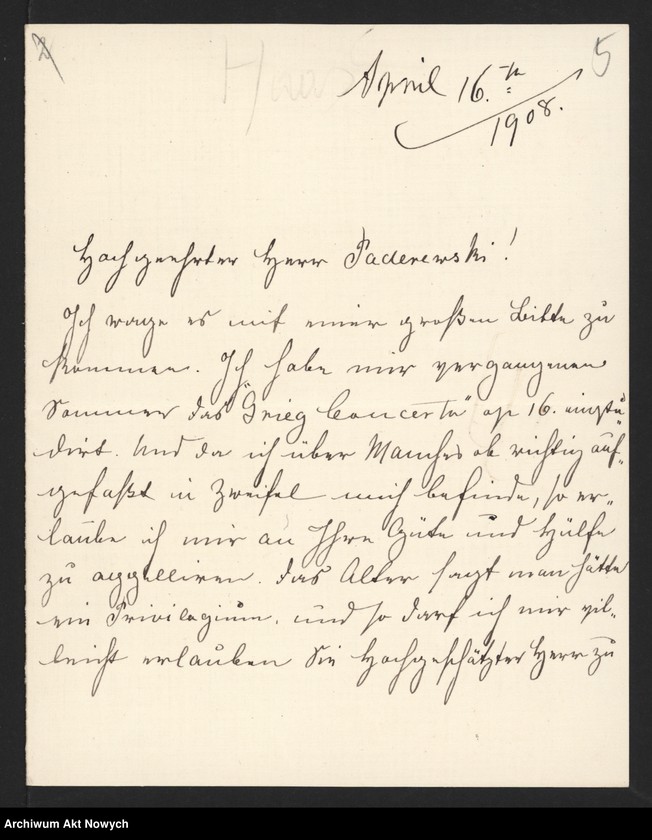 2
5
Haas
April 16.th
1908.
Hochgeehrter Herr Paderewski!
Ich wage es mit einer großen Bitte zu
kommen. Ich habe mir vergangenen
Sommer das "Grieg Concerto" op 16. einstu-
dirt. Und da ich über Manches ob richtig auf-
gefaßt in Zweifel mich befinde, so er-
laube ich mir an Ihre Güte und Hülfe
zu appelliren. Das Alter sagt man hätte
ein Privilegium, und so darf ich mir vil-
leicht erlauben Sie Hochgeschätzter Herr zu
Archiwum Akt Nowych